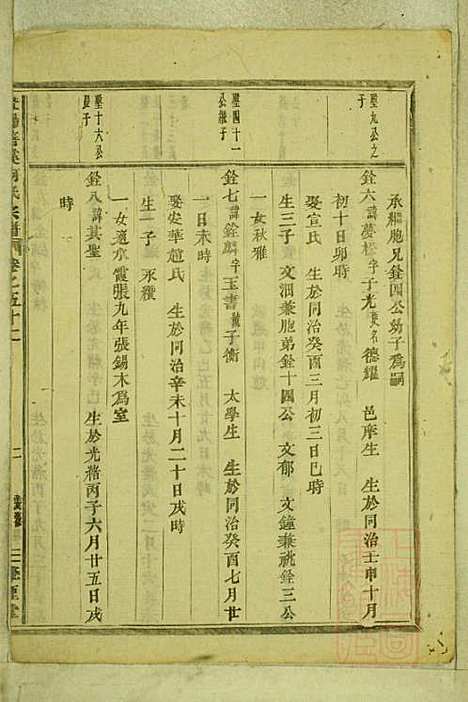 聖九公之
子
承繼胞兄銓四公幼子為嗣
銓六諱夢松字子光更名德耀 邑庠生 生於同治壬申十月
初十日卯時
娶宣氏 生於同治癸酉三月初三日巳時
生三子 文泗兼胞弟銓十四公 文郁 文鐘兼祧銓三公
一女秋雅
聖四十一
公繼子
銓七諱銓麟字玉書號子衡 太學生 生於同治癸酉七月廿
一日未時
娶安華趙氏 生於同治辛未十月二十日戌時
生一子 永禮
一女適水霞張九年張錫木為室
聖十六公
長子
銓八諱其聖 生於光緒丙子六月廿五日戌
時
氏宗譜 卷之五十二
二